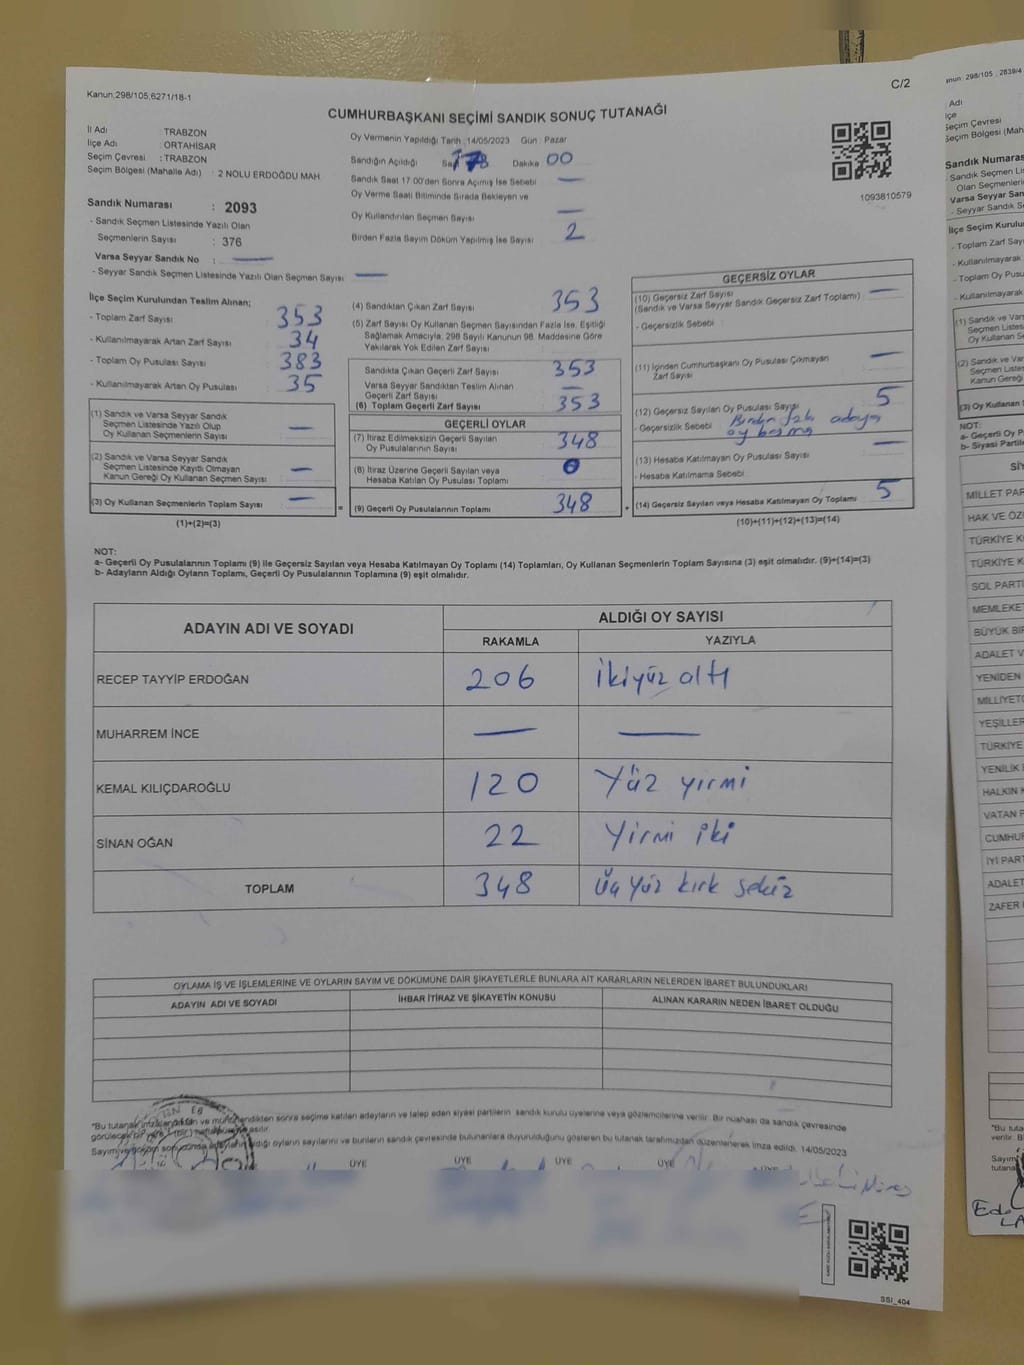 Kanun,298/105;6271/18-1
C/2
CUMHURBAŞKANI SEÇİMİ SANDIK SONUÇ TUTANAĞI
İl Adı : TRABZON
İlçe Adı : ORTAHİSAR
Seçim Çevresi : TRABZON
Seçim Bölgesi (Mahalle Adı) : 2 NOLU ERDOĞDU MAH
Sandık Numarası : 2093
- Sandık Seçmen Listesinde Yazılı Olan
Seçmenlerin Sayısı : 376
Varsa Seyyar Sandık No :
- Seyyar Sandık Seçmen Listesinde Yazılı Olan Seçmen Sayısı
Oy Vermenin Yapıldığı Tarih : 14/05/2023 Gün : Pazar
Sandığın Açıldığı Dakika 00
Sandık Saat 17.00'den Sonra Açımış İse Sebebi
Oy Verme Saati Bitiminde Sırada Bekleyen ve
Oy Kullandırılan Seçmen Sayısı
Birden Fazla Sayım Döküm Yapılmış İse Sayısı 2
1093810579
İlçe Seçim Kurulundan Teslim Alınan;
- Toplam Zarf Sayısı 353
- Kullanılmayarak Artan Zarf Sayısı 34
- Toplam Oy Pusulası Sayısı 383
- Kullanılmayarak Artan Oy Pusulası 35
(1) Sandık ve Varsa Seyyar Sandık
Seçmen Listesinde Yazılı Olup
Oy Kullanan Seçmenlerin Sayısı
(2) Sandık ve Varsa Seyyar Sandık
Seçmen Listesinde Kayıtlı Olmayan
Kanun Gereği Oy Kullanan Seçmen Sayısı
(3) Oy Kullanan Seçmenlerin Toplam Sayısı
(1)+(2)=(3)
(4) Sandıktan Çıkan Zarf Sayısı 353
(5) Zarf Sayısı Oy Kullanan Seçmen Sayısından Fazla İse, Eşitliği
Sağlamak Amacıyla, 298 Sayılı Kanunun 98. Maddesine Göre
Yakılarak Yok Edilen Zarf Sayısı
Sandıkta Çıkan Geçerli Zarf Sayısı 353
Varsa Seyyar Sandıktan Teslim Alınan
Geçerli Zarf Sayısı
(6) Toplam Geçerli Zarf Sayısı 353
GEÇERLİ OYLAR
(7) İtiraz Edilmeksizin Geçerli Sayılan
Oy Pusulalarının Sayısı 348
(8) İtiraz Üzerine Geçerli Sayılan veya
Hesaba Katılan Oy Pusulası Toplamı 0
= (9) Geçerli Oy Pusulalarının Toplamı 348 +
GEÇERSİZ OYLAR
(10) Geçersiz Zarf Sayısı
(Sandık ve Varsa Seyyar Sandık Geçersiz Zarf Toplamı)
- Geçersizlik Sebebi
(11) İçinden Cumhurbaşkanı Oy Pusulası Çıkmayan
Zarf Sayısı
(12) Geçersiz Sayılan Oy Pusulası Sayısı 5
- Geçersizlik Sebebi adaya
oy basma
(13) Hesaba Katılmayan Oy Pusulası Sayısı
- Hesaba Katılmama Sebebi
(14) Geçersiz Sayılan veya Hesaba Katılmayan Oy Toplamı 5
(10)+(11)+(12)+(13)=(14)
NOT:
a- Geçerli Oy Pusulalarının Toplamı (9) ile Geçersiz Sayılan veya Hesaba Katılmayan Oy Toplamı (14) Toplamları, Oy Kullanan Seçmenlerin Toplam Sayısına (3) eşit olmalıdır. (9)+(14)=(3)
b- Adayların Aldığı Oyların Toplamı, Geçerli Oy Pusulalarının Toplamına (9) eşit olmalıdır.
ADAYIN ADI VE SOYADI ALDIĞI OY SAYISI
RAKAMLA YAZIYLA
RECEP TAYYİP ERDOĞAN 206 İkiyüz altı
MUHARREM İNCE
KEMAL KILIÇDAROĞLU 120 Yüz yirmi
SİNAN OĞAN 22 Yirmi iki
TOPLAM 348 Üç yüz kırk sekiz
OYLAMA İŞ VE İŞLEMLERİNE VE OYLARIN SAYIM VE DÖKÜMÜNE DAİR ŞİKAYETLERLE BUNLARA AİT KARARLARIN NELERDEN İBARET BULUNDUKLARI
ADAYIN ADI VE SOYADI İHBAR İTİRAZ VE ŞİKAYETİN KONUSU ALINAN KARARIN NEDEN İBARET OLDUĞU
"Bu tutanak sonra seçime katılan adayların ve talep eden siyasi partilerin sandık kurulu üyelerine veya gözlemcilerine verilir. Bir nüshası da sandık çevresinde
aldığı oyların sayılarını ve bunların sandık çevresinde bulunanlara duyurulduğunu gösteren bu tutanak tarafımızdan düzenlenerek imza edildi. 14/05/2023
ÜYE ÜYE ÜYE ÜYE
SSI_404
Adı
Seçim Çevresi
Seçim Bölgesi
Sandık Numarası
- Sandık Seçmen
Varsa Seyyar
- Seyyar San
- Toplam Zarf Sayısı
- Kullanılmayarak
- Toplam Oy Pusulası
- Kullanılmayarak
(3) Oy Kullanan
NOT:
a- Geçerli Oy
b- Siyasi
MİLLET
HAK VE
TÜRKİYE
TÜRKİYE
SOL
BÜYÜK
ADALET
YENİDEN
TÜRKİYE
YENİLİK
HALKIN
VATAN
ADALET
ZAFER